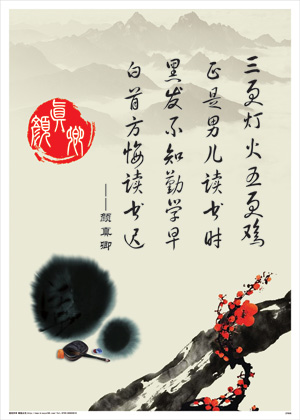 三更灯火五更鸡
正是男儿读书时
黑发不知勤学早
白首方悔读书迟
——颜真卿
顏真卿